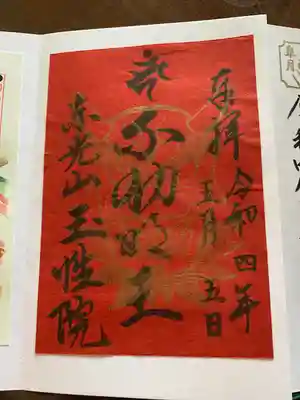 奉拝 令和四年
五月五日
不動明王
東光山 玉性院
皐月